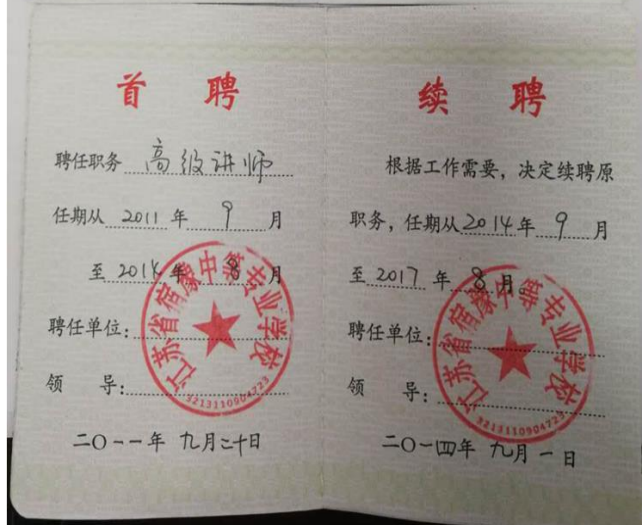 首聘
聘任职务 高级讲师
任期从 2011 年 9 月
至 2014 年 8 月
聘任单位:
领 导:
二〇一一年 九月二十日
江苏省宿豫中等专业学校
续聘
根据工作需要，决定续聘原
职务，任期从 2014 年 9 月
至 2017 年 8 月。
聘任单位:
领 导:
二〇一四年 九月 一 日
江苏省宿豫中等专业学校